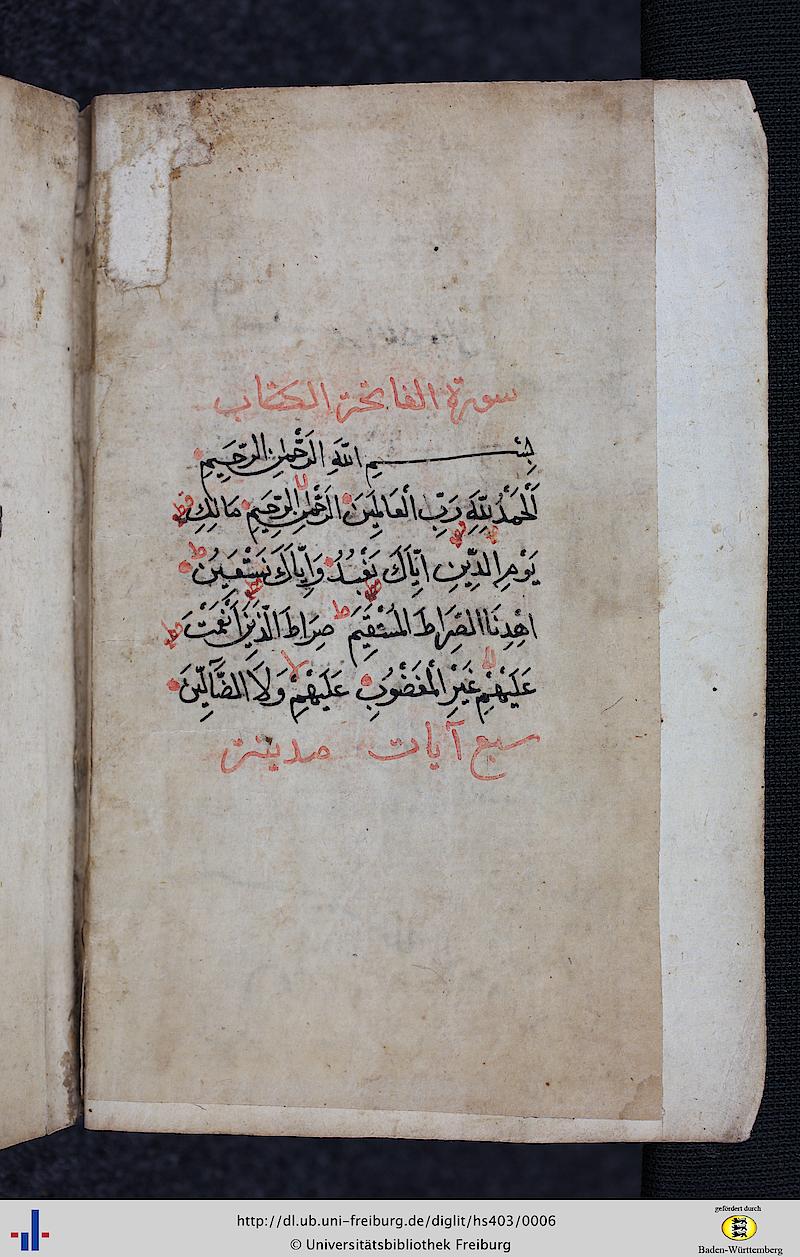 سورة الفاتحة الكتاب
بِسْمِ اللّٰهِ الرَّحْمٰنِ الرَّحِيمِ
اَلْحَمْدُ لِلّٰهِ رَبِّ الْعَالَمِينَ الرَّحْمٰنِ الرَّحِيمِ مَالِكِ
يَوْمِ الدِّينِ اِيَّاكَ نَعْبُدُ وَاِيَّاكَ نَسْتَعِينُ
اهْدِنَا الصِّرَاطَ الْمُسْتَقِيمَ صِرَاطَ الَّذِينَ اَنْعَمْتَ
عَلَيْهِمْ غَيْرِ الْمَغْضُوبِ عَلَيْهِمْ وَلَا الضَّآلِّينَ
سبع آيات مدينة
http://dl.ub.uni-freiburg.de/diglit/hs403/0006
© Universitätsbibliothek Freiburg
gefördert durch
Baden-Württemberg